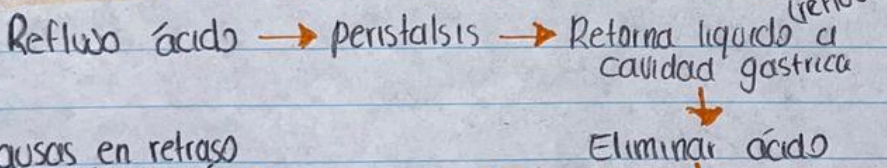 Reflujo ácido → peristalsis → Retorna liquido a
cavidad gastrica
↓
en retraso
Eliminar ácido